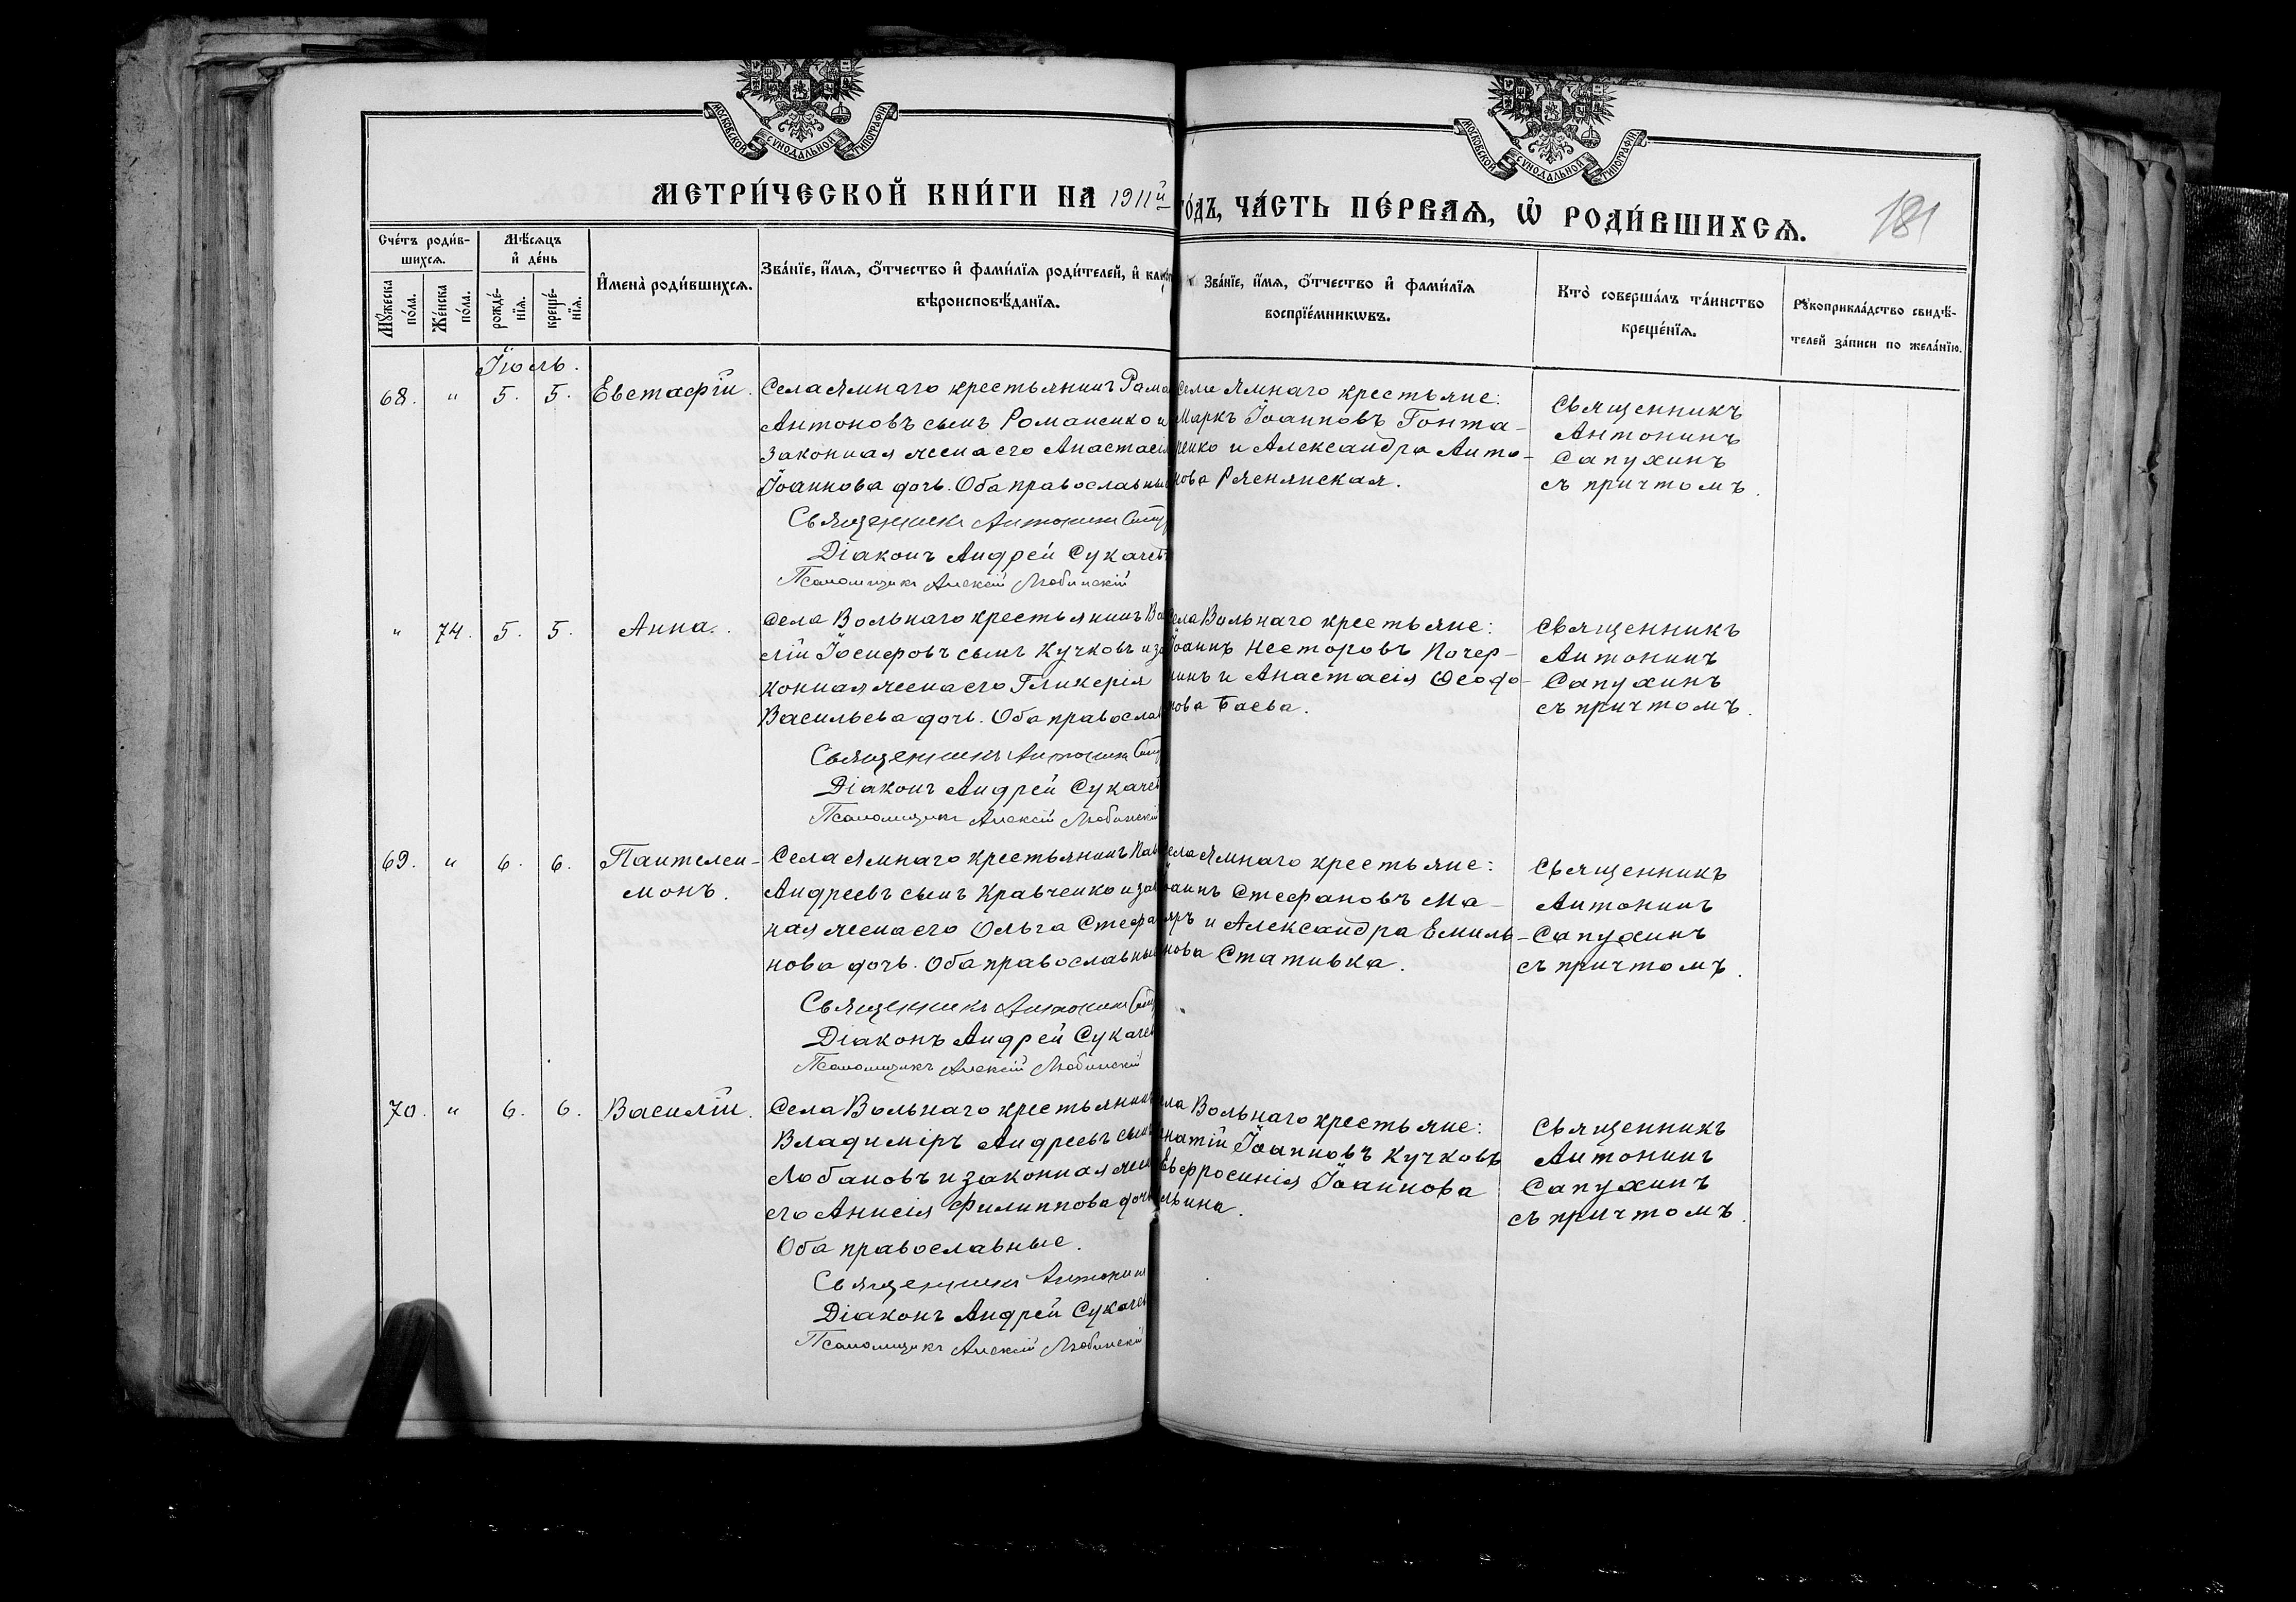 МОСКОВСКОЙ СѴНОДАЛЬНОЙ ТИПОГРАФІИ
МОСКОВСКОЙ СѴНОДАЛЬНОЙ ТИПОГРАФІИ
МЕТРИ́ЧЕСКОЙ КНИ́ГИ НА 1911й
ГО́ДЪ, ЧА́СТЬ ПЕ́РВАѦ, Ѡ҆ РОДИ́ВШИХСѦ.
181
Сче́тъ роди́в-
шихсѧ.
Мѣ́сѧцъ
и҆ де́нь
Мꙋ́жеска
по́ла.
Же́нска
по́ла.
рожде́-
нїѧ.
креще́-
нїѧ.
И҆мена̀ роди́вшихсѧ.
Зва́нїе, и҆́мѧ, ѻ҆́тчество и҆ фами́лїѧ роди́телей, и҆
вѣроисповѣ́данїѧ.
Зва́нїе, и҆́мѧ, ѻ҆́тчество и҆ фами́лїѧ
воспрїе́мникѡвъ.
Кто̀ соверша́лъ та́инство
креще́нїѧ.
Рꙋкоприкла́дство свидѣ́-
телей за́писи по жела́нїю.
Іюль.
68. " 5. 5. Евстафій.
Села Ямнаго крестьянинъ Рома
Антоновъ сынъ Романенко и
законная жена его Анастасія
Іоаннова дочь. Оба православные
Священникъ Антонинъ
Діаконъ Андрей Сукачевъ
Псаломщикъ Алексій Любинскій
Села Ямнаго крестьяне:
Маркъ Іоанновъ Гонта-
ренко и Александра Анто-
нова Ряснянская.
Священникъ
Антонинъ
Сапухинъ
съ причтомъ.
" 74. 5. 5. Анна.
Села Вольнаго крестьянинъ Ва
силій Іосифовъ сынъ Кучковъ и за
конная жена его Гликерія
Васильева дочь. Оба православ
Священникъ Антонинъ
Діаконъ Андрей Сукачев
Псаломщикъ Алексій Любинскій
Села Вольнаго крестьяне:
Іоаннъ Несторовъ Почер-
нинъ и Анастасія Ѳеодо-
рова Баева.
Священникъ
Антонинъ
Сапухинъ
съ причтомъ.
69. " 6. 6. Пантелеи-
монъ.
Села Ямнаго крестьянинъ Пав
Андреевъ сынъ Кравченко и зак
ная жена его Ольга Стефа
нова дочь. Оба православные
Священникъ Антонинъ
Діаконъ Андрей Сукачев
Псаломщикъ Алексій Любинскій
Села Ямнаго крестьяне:
Іоаннъ Стефановъ Ма-
ляръ и Александра Емилья-
нова Стативка.
Священникъ
Антонинъ
Сапухинъ
съ причтомъ.
70. " 6. 6. Василій.
Села Вольнаго крестьянинъ
Владиміръ Андреевъ сынъ
Лобановъ и законная жена
его Анисія Филиппова дочь
Оба православные.
Священникъ Антонинъ
Діаконъ Андрей Сукачев
Псаломщикъ Алексій Любинскій
ела Вольнаго крестьяне:
гнатій Іоанновъ Кучковъ
Евфросинія Іоаннова
Священникъ
Антонинъ
Сапухинъ
съ причтомъ.